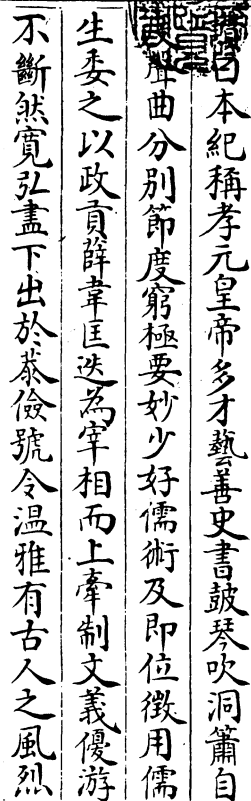 曰本紀稱孝元皇帝多才藝善史書皷琴吹洞簫自
聲曲分別節度窮極要妙少好儒術及即位徵用儒
生委之以政貢薛韋匡迭為宰相而上牽制文義優游
不斷然寬弘盡下出於恭儉號令温雅有古人之風烈